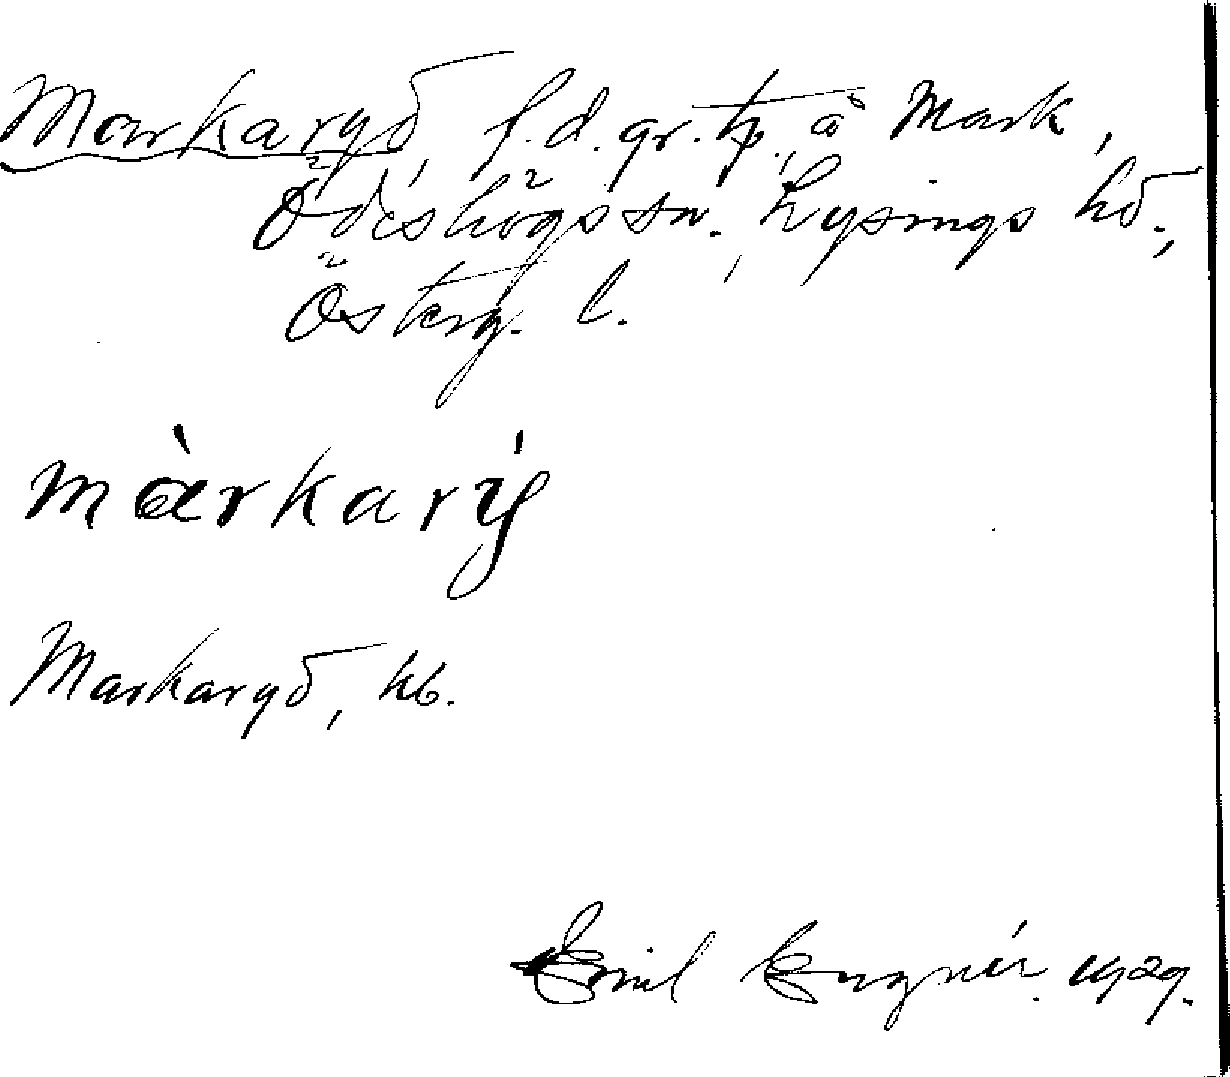 Markaryd, f.d. gr. tp, å Mark,
Ödeshögs sn., Lysings hd.,
Österg. l.
màrkarý
Markaryd, kb.
Emil Lugnér. 1929.